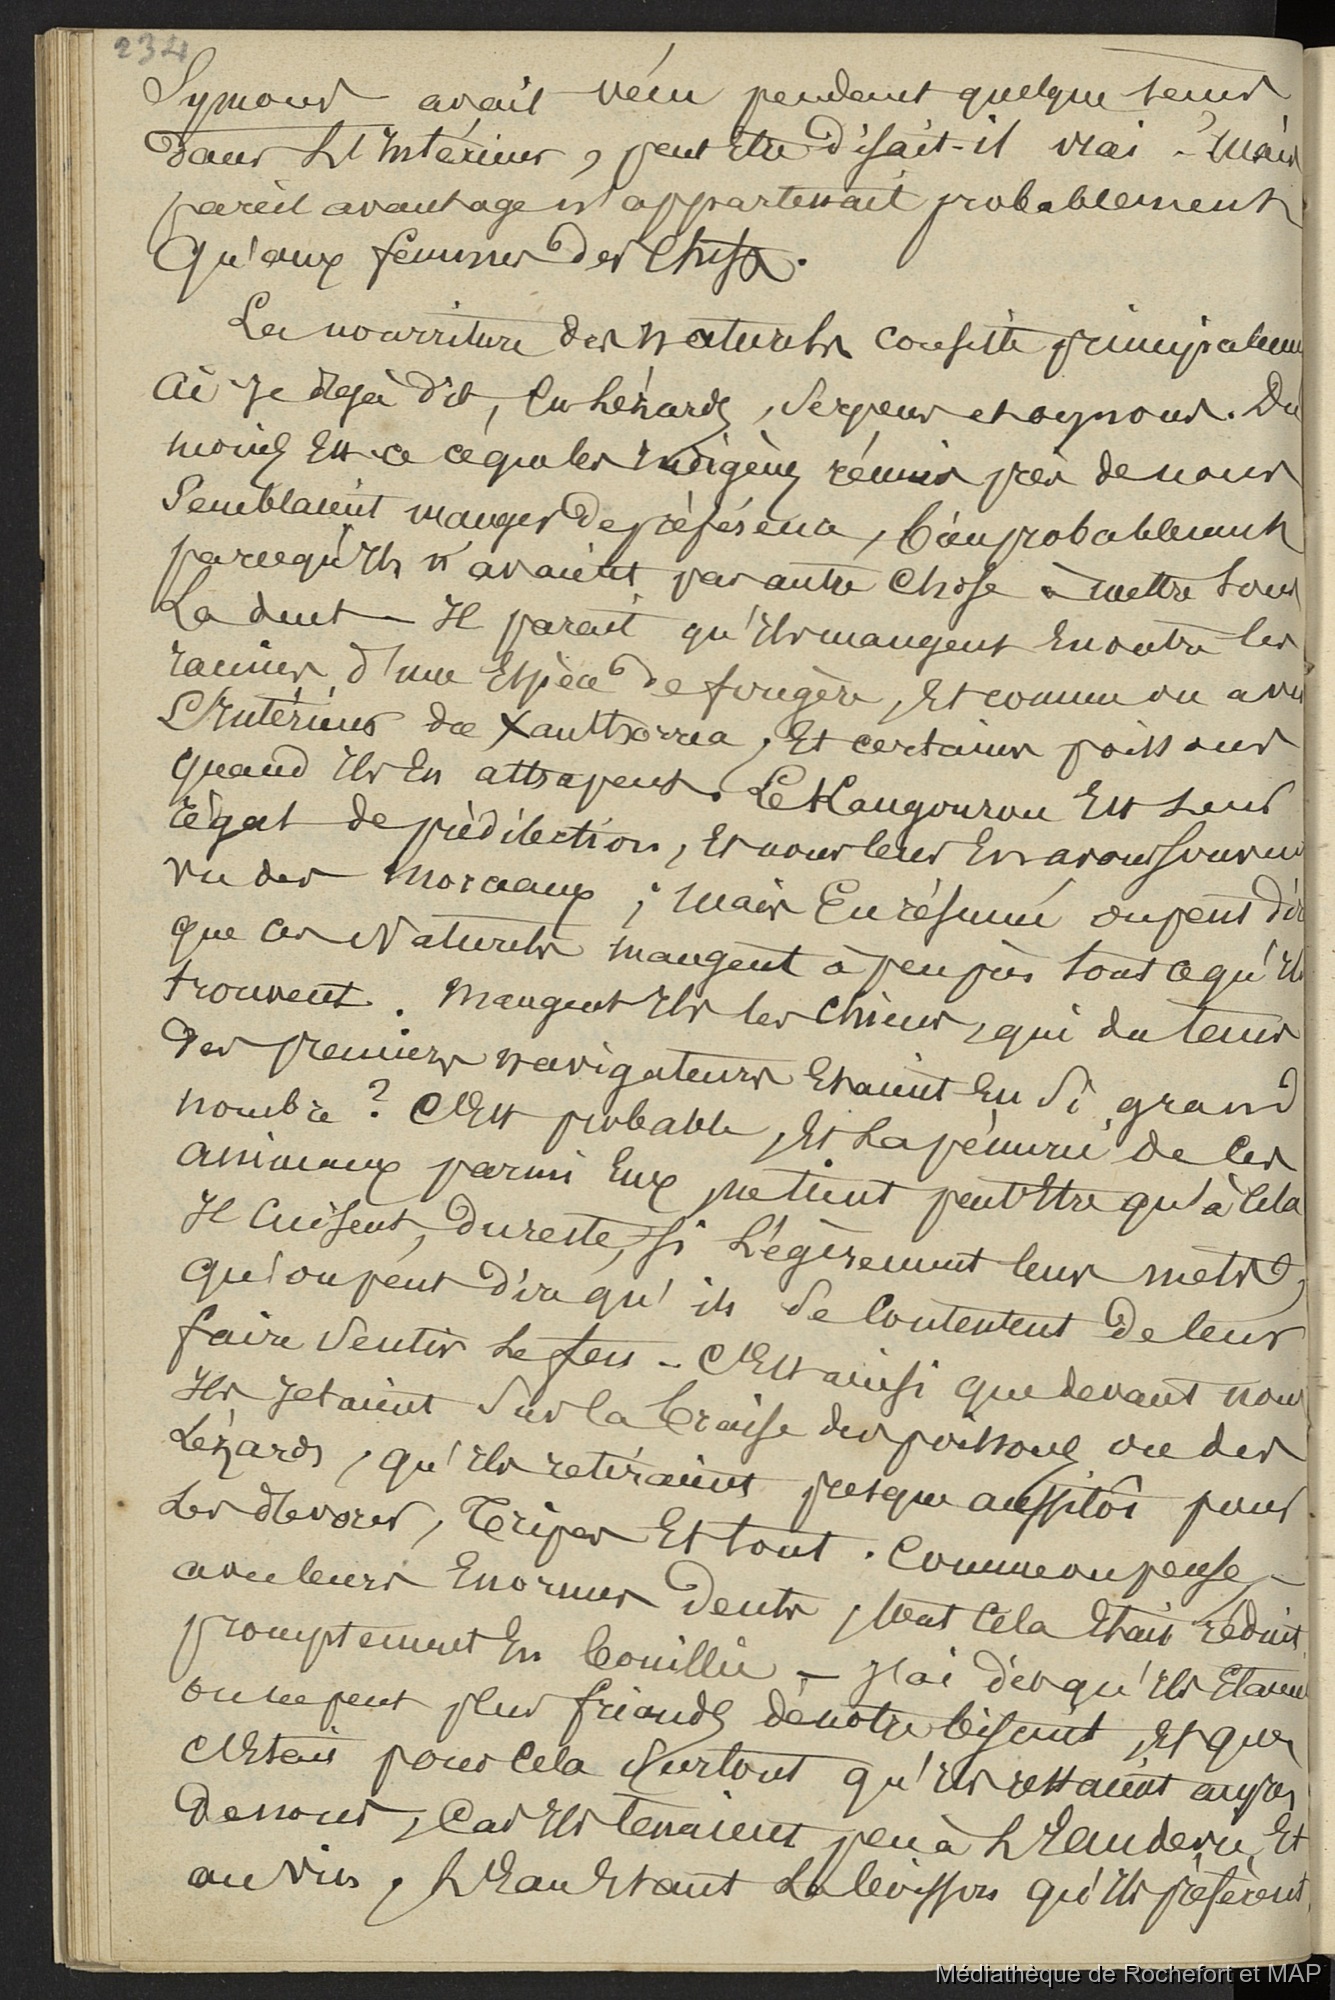 234
Symons avait vécu pendant quelque tems
dans L'Intérieur, peut Etre disait-il vrai - Mais
pareil avantage n'appartenait probablement
Qu'aux femmes des Chefs.
La nourriture des Naturels consiste principalem
ai Je déjà dit, En Lézards, Serpens et oignons. Du
moins Est-ce ce que les Indigènes réunis près de nous
Semblaient manger de préférence, Bien probablement
parcequ'Ils n'avaient pas autre Chose à mettre Sous
La dent - Il parait qu'Ils mangent En outre les
racines d'une Espèce de fougère, Et comme on a vu
L'Intérieur du Xanthorrea, Et certains poissons
quand Ils En attrapent. Le Kangourou Est Leur
régal de prédilection, Et nous leur En avons Souvent
vu des morceaux ; Mais En résumé on peut dir
que ces Naturels mangent à peu près tout ce qu'Ils
trouvent. Mangent Ils les Chiens, qui du tems
des premiers navigateurs Etaient En Si grand
nombre ? C'Est probable, Et La pénurie de Ces
animaux parmi Eux ne tient peut Etre qu'à Cela
Il Cuisent, Du reste, Si Légèrement leurs mets,
Qu'on peut dire qu'ils Se Contentent De leur
faire Sentir Le feu - C'Est ainsi que devant nous
Ils Jetaient Sur la Braise des poissons ou des
Lézards, qu'Ils retiraient presque aussitôt pour
Les dévorer, Tripes Et tout. Comme on pense,
avec leurs Enormes Dents, tout Cela Etait réduit
promptement En Bouillie - J'ai dit qu'Ils Etaient
on ne peut plus friands de notre biscuit, Et que
C'Etait pour Cela Surtout qu'Ils restaient auprès
De nous, Car Ils tenaient peu à L'Eau de vie Et
au vin, L'Eau Etant La boisson qu'Ils préfèrent
Médiathèque de Rochefort et MAP